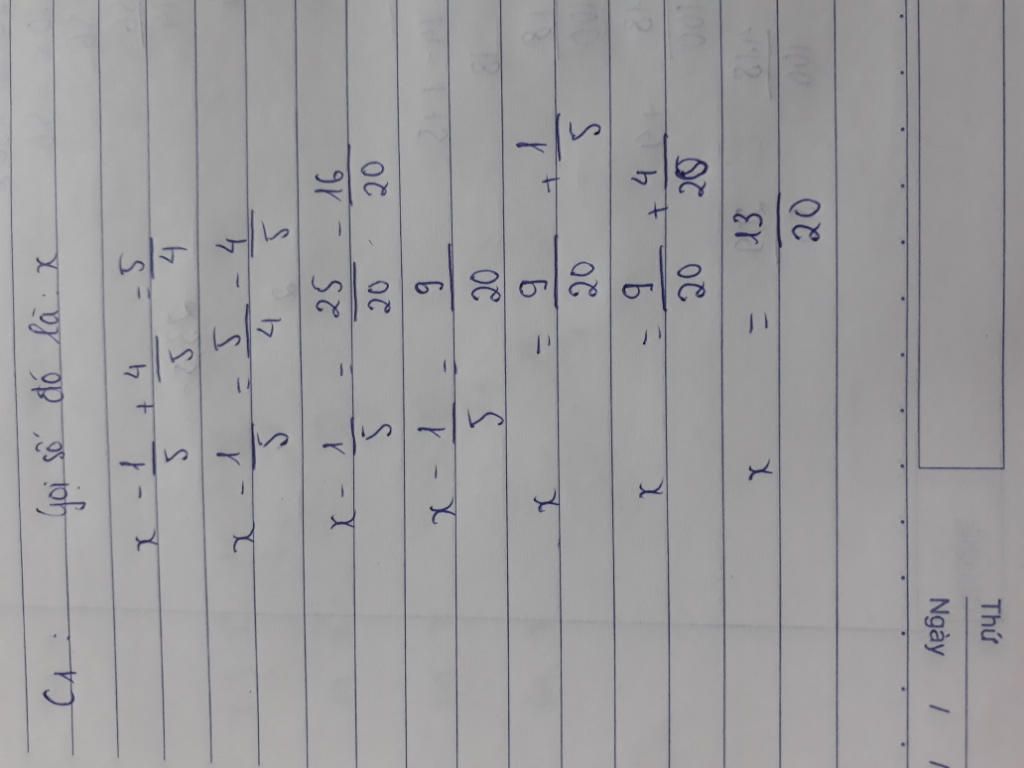 C1: Gọi số đó là: x
x - 1/5 + 4/5 = 5/4
x - 1/5 = 5/4 - 4/5
x - 1/5 = 25/20 - 16/20
x - 1/5 = 9/20
x = 9/20 + 1/5
x = 9/20 + 4/20
x = 13/20
Thứ
Ngày / /